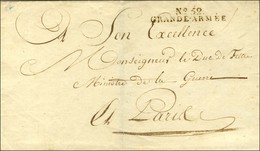 No 50
GRANDE-ARMÉE
A Son Excellence
Monseigneur le Duc de Feltre
Ministre de la Guerre
A Paris